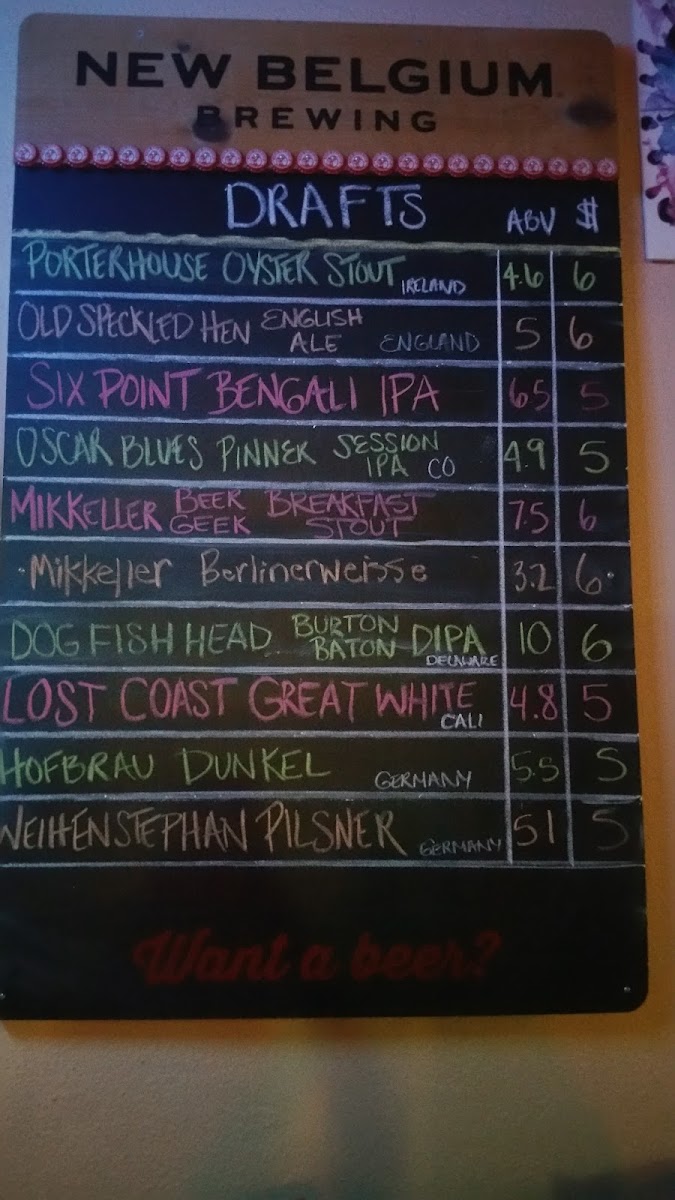 NEW BELGIUM
BREWING
DRAFTS ABV $
PORTERHOUSE OYSTER STOUT IRELAND 4.6 6
OLD SPECKLED HEN ENGLISH ALE ENGLAND 5 6
SIX POINT BENGALI IPA 65 5
OSCAR BLUES PINNER SESSION IPA CO 49 5
MIKKELLER BEER GEEK BREAKFAST STOUT 7.5 6
·Mikkeller Berlinerweisse 3.2 6·
DOG FISH HEAD BURTON BATON DIPA DELAWARE 10 6
LOST COAST GREAT WHITE CALI 4.8 5
HOFBRAU DUNKEL GERMANY 5.5 5
WEIHENSTEPHAN PILSNER GERMANY 51 5
Want a beer?